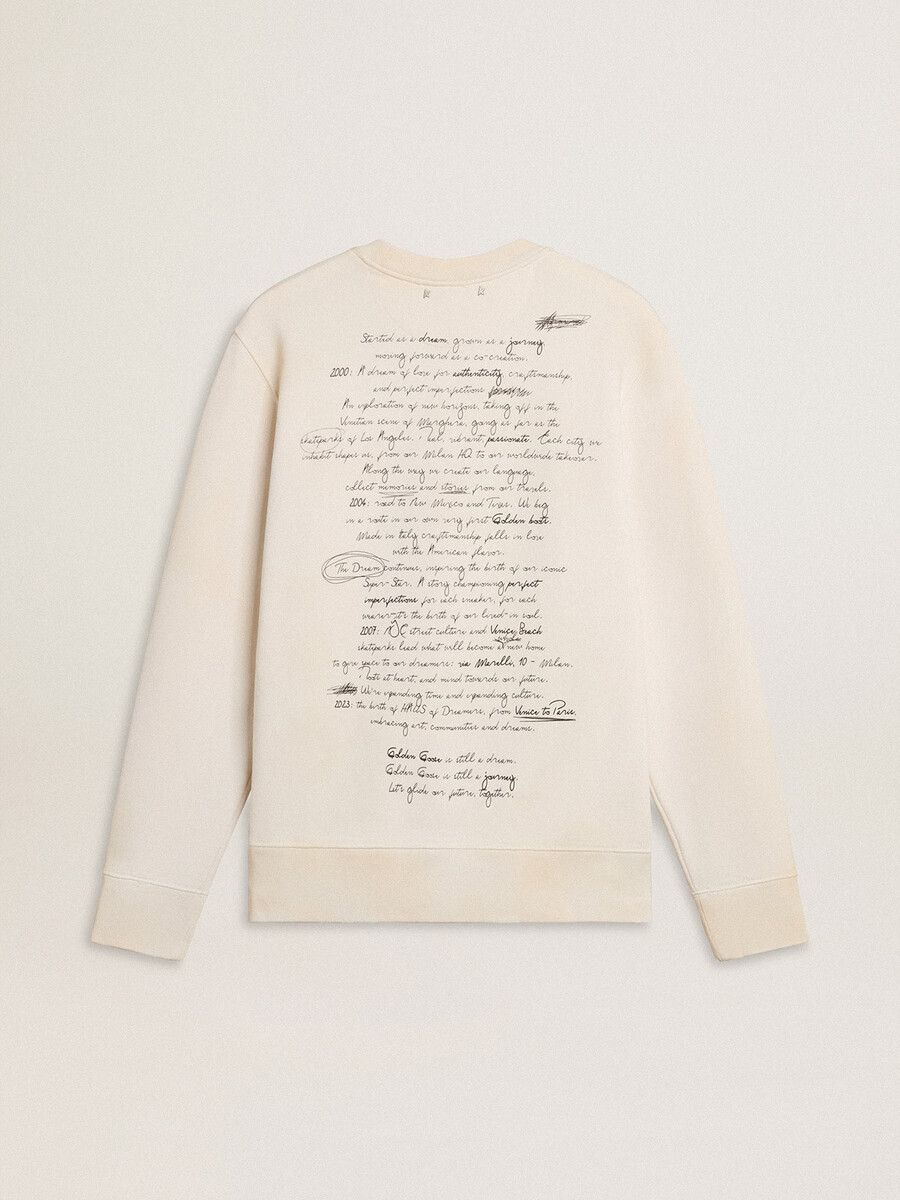 Started as a dream, grown as a journey,
moving forward as a co-creation.
2000: A dream of love for authenticity, craftsmanship,
and perfect imperfections
An exploration of new horizons, taking off in the
Venetian scene of Marghera, going as far as the
skateparks of Los Angeles. Real, vibrant, passionate. Each city we
inhabit shapes us, from our Milan HQ to our worldwide takeover.
Along the way we create our language,
collect memories and stories from our travels.
2004: road to New Mexico and Texas. We big
in a route in our own very first Golden boots.
Made in Italy craftsmanship falls in love
with the American flavor.
The Dream continues, inspiring the birth of our iconic
Super-Star. A story championing perfect
imperfections for each sneaker, for each
wearer-it's the birth of our lived-in soul.
2007: street culture and Venice Beach
skateparks lead what will become a new home
to give space to our dreamers: via Merelli, 10 - Milan.
Roots at heart, and mind towards our future.
We're expanding time and expanding culture.
2023: the birth of HAUS of Dreamers, from Venice to Paris,
embracing art, communities and dreams.
Golden Goose is still a dream.
Golden Goose is still a journey.
Let's glide our future, together.